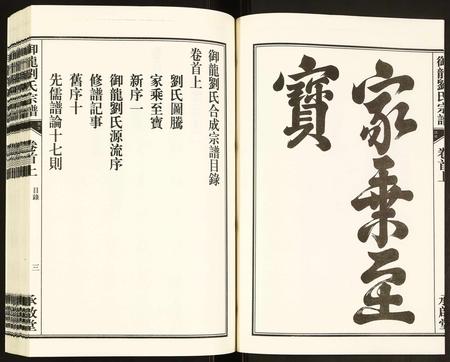 御龍劉氏宗譜
卷首上
承啟堂
家乘至
寶
御龍劉氏合成宗譜目錄
卷首上
劉氏圖騰
家乘至寶
新序一
御龍劉氏源流序
修譜記事
舊序十
先儒譜論十七則
御龍劉氏宗譜
卷首上
目錄
三
承啟堂